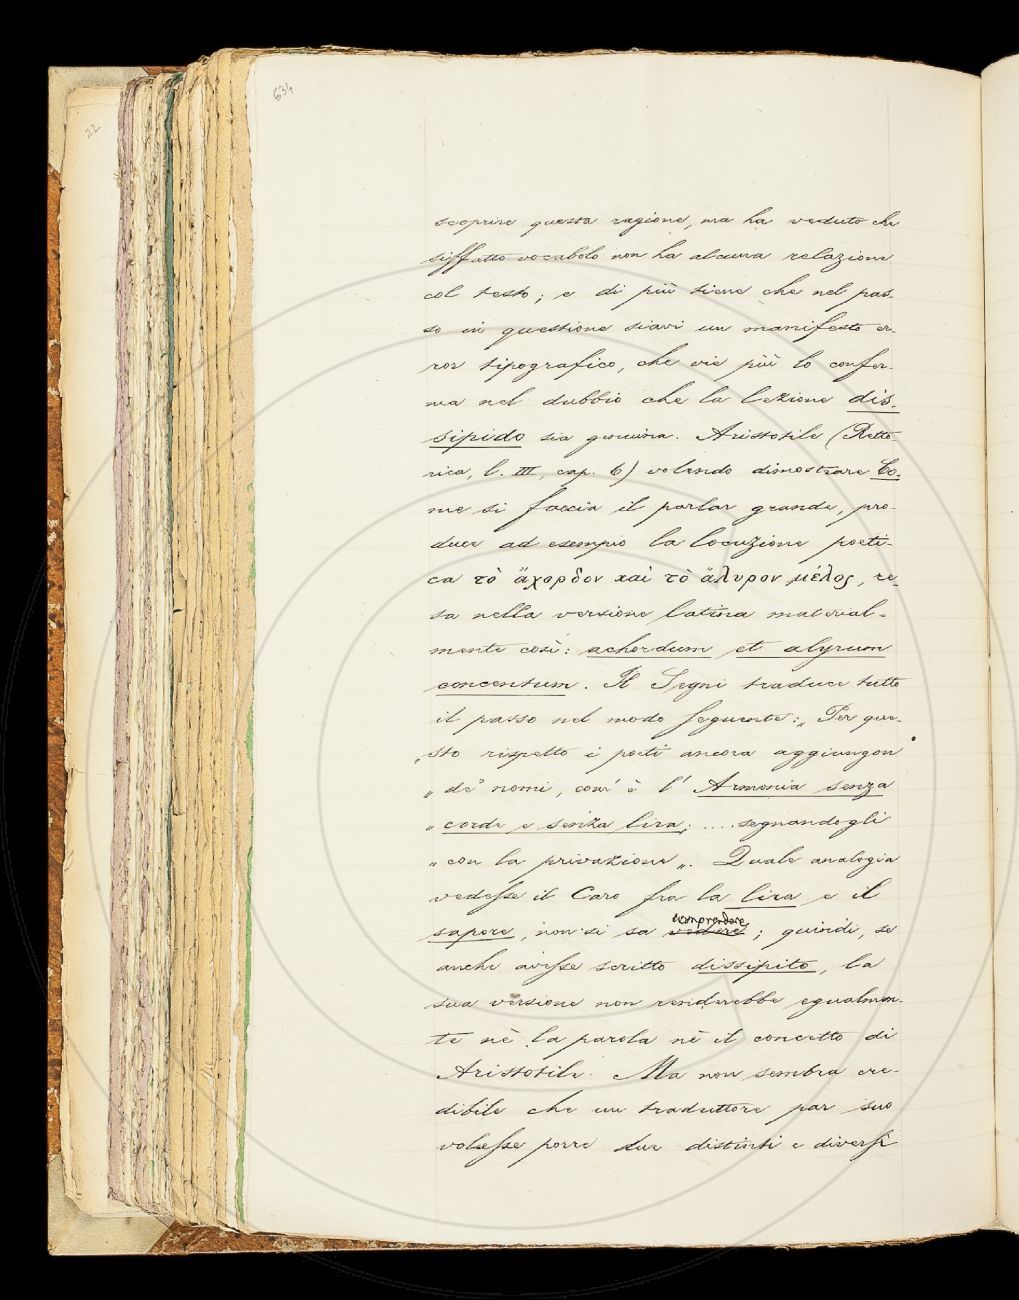 22
634
scoprire questa ragione, ma ha veduto che
siffatto vocabolo non ha alcuna relazione
col testo; e di più tiene che nel pas-
so in questione siavi un manifesto er-
ror tipografico, che vie più lo confer-
ma nel dubbio che la lezione dis-
sipido sia genuina. Aristotile (Retto-
rica, l. III, cap. 6) volendo dimostrare Co-
me si faccia il parlar grande, pro-
duce ad esempio la locuzione poeti-
ca τὸ ἄχορδον καὶ τὸ ἄλυρον μέλος, re-
sa nella versione latina material-
mente così: achordum et alyruon
concentum. Il Segni traduce tutto
il passo nel modo seguente: „ Per que-
„ sto rispetto i poeti ancora aggiungon
„ de' nomi, com' è l' Armonia senza
„ corde e senza lira; .... segnandogli
„ con la privazione „. Quale analogia
vedesse il Caro fra la lira e il
comprendere
sapore, non si sa vedere; quindi, se
anche avesse scritto dissipito, la
sua versione non renderebbe egualmen-
te nè la parola nè il concetto di
Aristotile. Ma non sembra cre-
dibile che un traduttore par suo
volesse porre due distinti e diversi